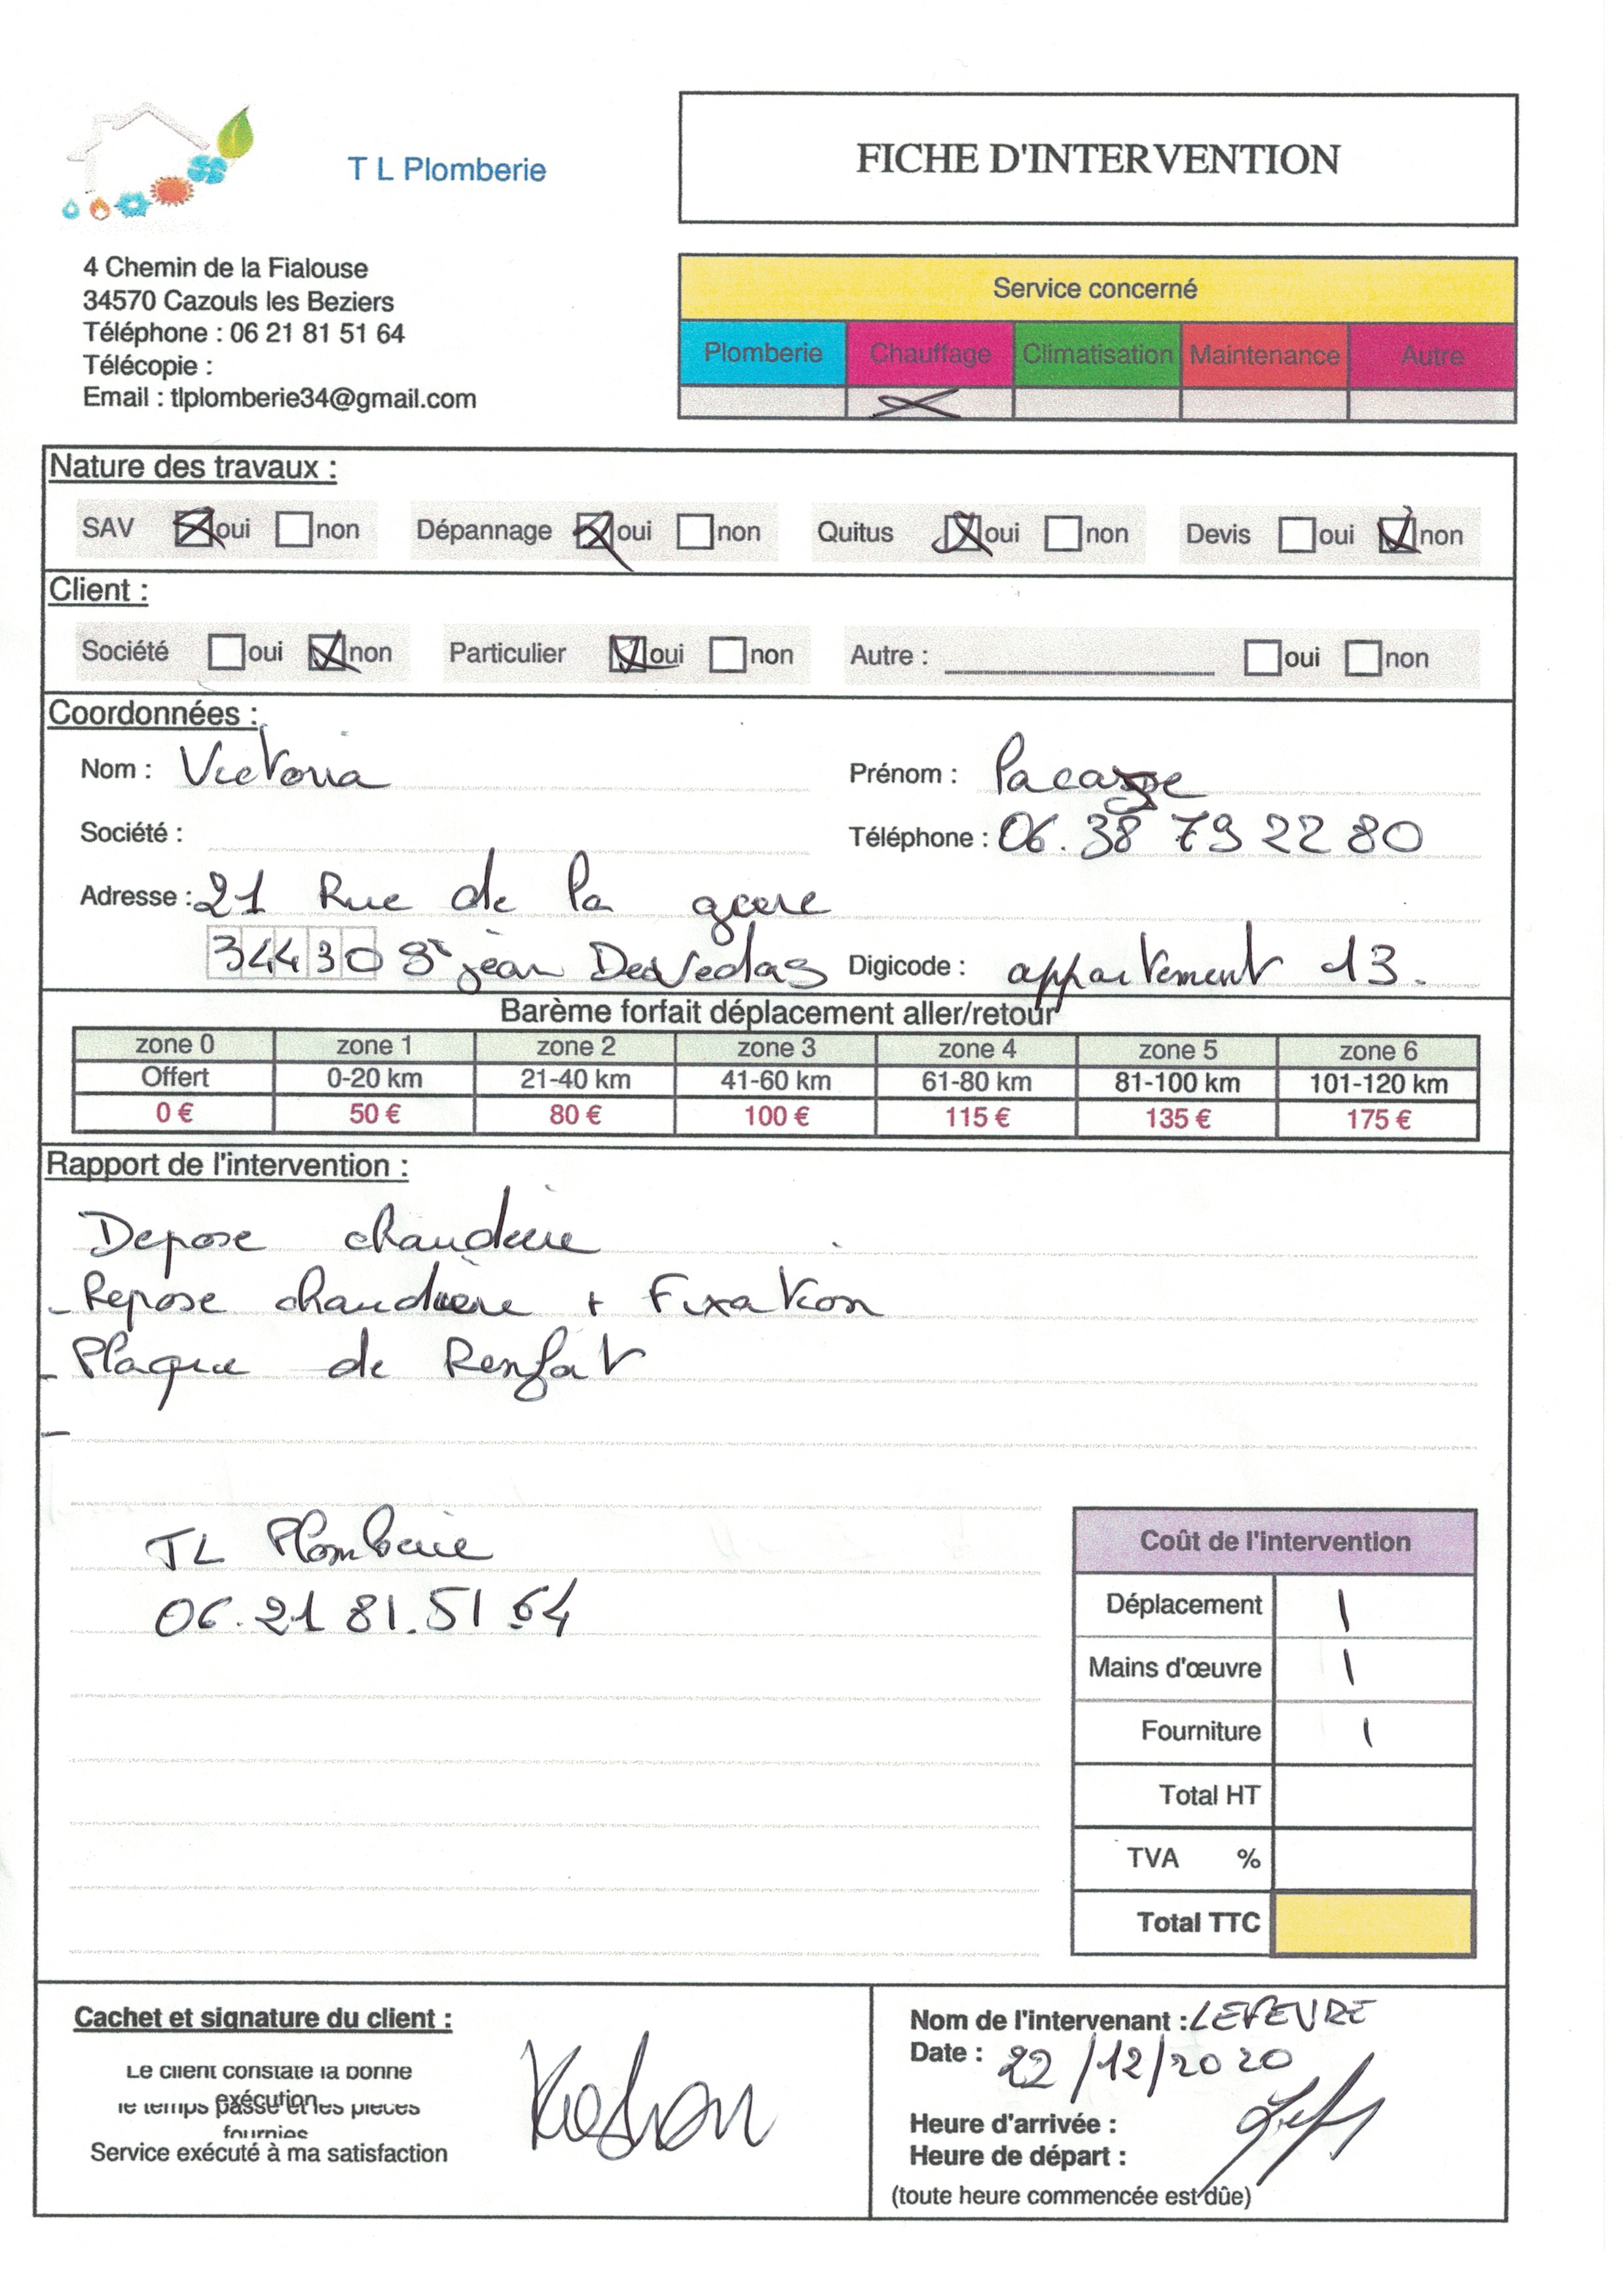 T L Plomberie
FICHE D'INTERVENTION
4 Chemin de la Fialouse
34570 Cazouls les Beziers
Téléphone : 06 21 81 51 64
Télécopie :
Email : tlplomberie34@gmail.com
Service concerné
Plomberie Chauffage Climatisation Maintenance Autre
Nature des travaux :
SAV oui non Dépannage oui non Quitus oui non Devis oui non
Client :
Société oui non Particulier oui non Autre : oui non
Coordonnées :
Nom : Victoria Prénom :
Société : Téléphone : 06.38 79 22 80
Adresse : 21 Rue de la gare
34430 St jean DeVedas Digicode : appartement 13.
Barème forfait déplacement aller/retour
zone 0 zone 1 zone 2 zone 3 zone 4 zone 5 zone 6
Offert 0-20 km 21-40 km 41-60 km 61-80 km 81-100 km 101-120 km
0 € 50 € 80 € 100 € 115 € 135 € 175 €
Rapport de l'intervention :
Depose chaudiere
- Repose chaudière + Fixation
- Plaque de Renfort
-
TL Plomberie
06.21 81.51.64
Coût de l'intervention
Déplacement \
Mains d'œuvre \
Fourniture \
Total HT
TVA %
Total TTC
Cachet et signature du client :
Le client constate la bonne
exécution
le temps passé et les pièces
fournies
Service exécuté à ma satisfaction
Nom de l'intervenant : LEFEVRE
Date : 22/12/2020
Heure d'arrivée :
Heure de départ :
(toute heure commencée est dûe)